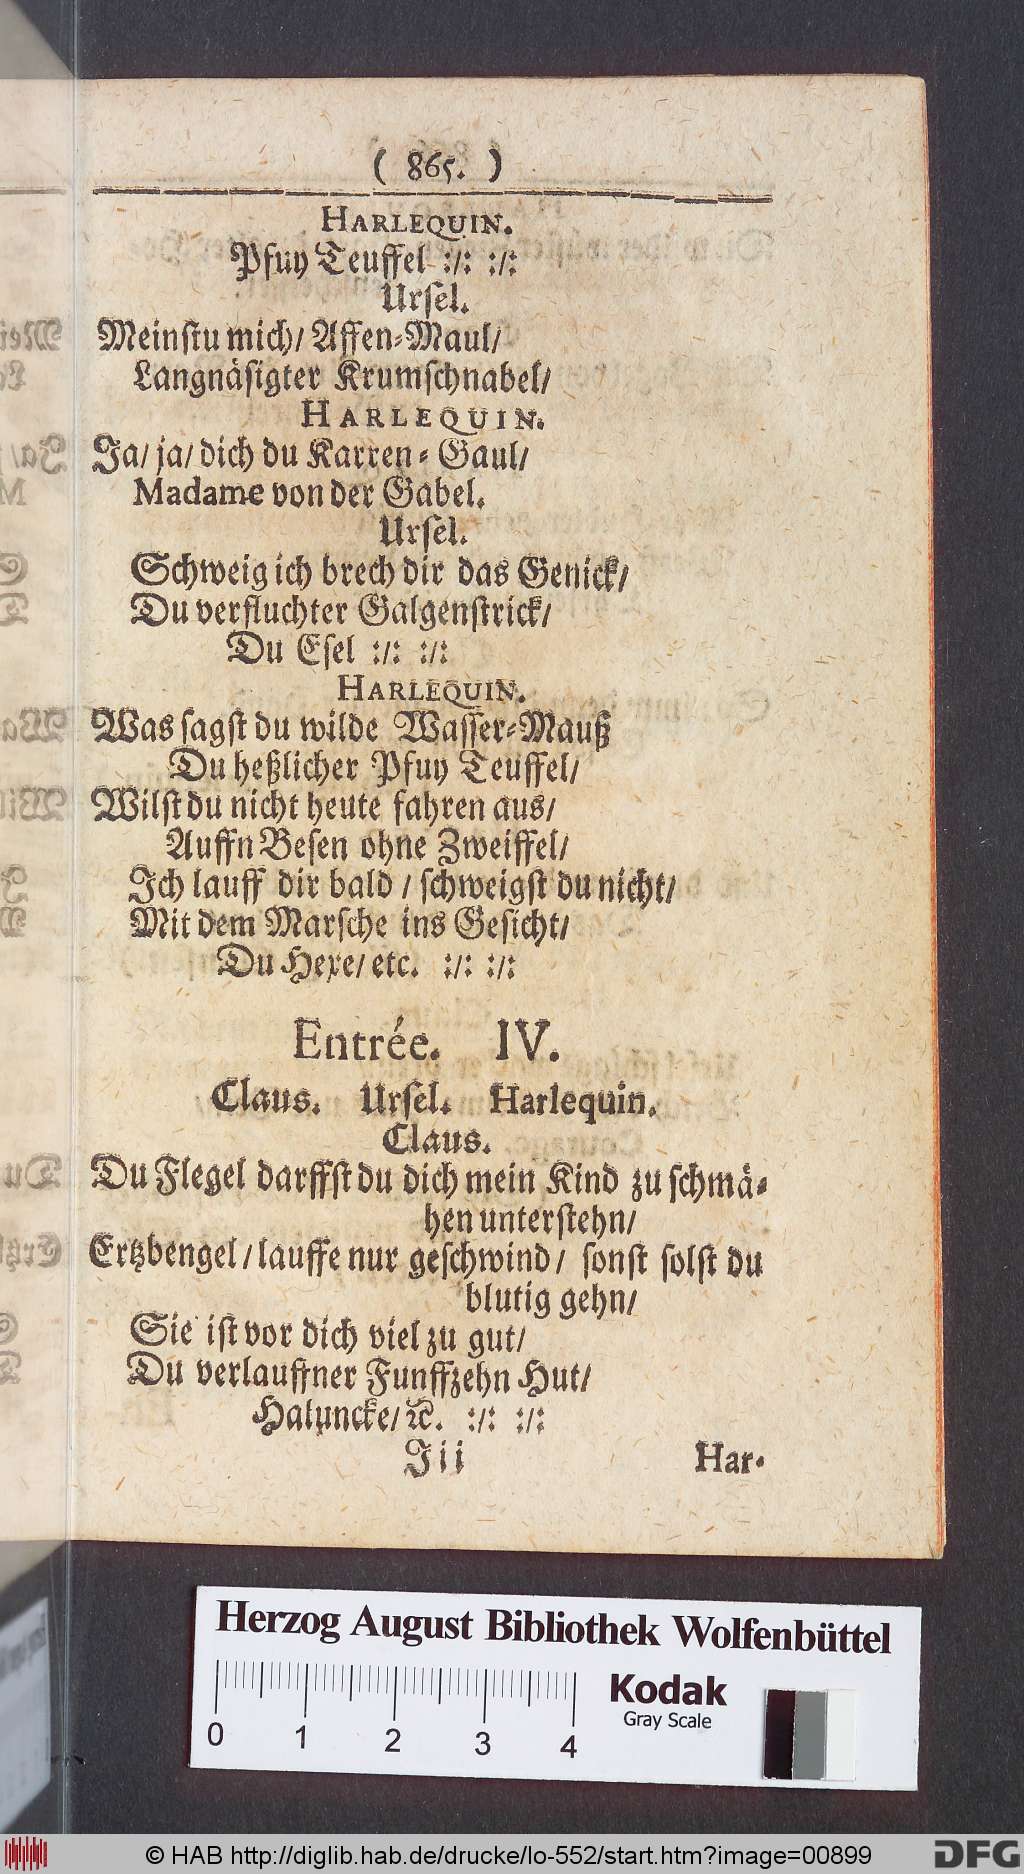 ( 865. )
HARLEQUIN.
Pfuy Teuffel :/: :/:
Urſel.
Meinſtu mich/ Affen-Maul/
Langnäſigter Krumſchnabel/
HARLEQUIN.
Ja/ ja/ dich du Karren-Gaul/
Madame von der Gabel.
Urſel.
Schweig ich brech dir das Genick/
Du verfluchter Galgenſtrick/
Du Eſel :/: :/:
HARLEQUIN.
Was ſagſt du wilde Waſſer-Mauß
Du heßlicher Pfuy Teuffel/
Wilſt du nicht heute fahren aus/
Auffn Beſen ohne Zweiffel/
Ich lauff dir bald / ſchweigſt du nicht/
Mit dem Marſche ins Geſicht/
Du Hexe/ etc. :/: :/:
Entrée. IV.
Claus. Urſel. Harlequin.
Claus.
Du Flegel darffſt du dich mein Kind zu ſchmä-
hen unterſtehn/
Ertzbengel / lauffe nur geſchwind / ſonſt ſolſt du
blutig gehn/
Sie iſt vor dich viel zu gut/
Du verlauffner Funffzehn Hut/
Haluncke/ ꝛc. :/: :/:
Jii Har-
Herzog August Bibliothek Wolfenbüttel
Kodak
Gray Scale
0 1 2 3 4
© HAB http://diglib.hab.de/drucke/lo-552/start.htm?image=00899
DFG